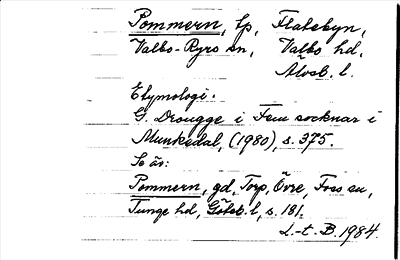 Pommern, tp, Flatebyn,
Valbo-Ryrs sn, Valbo hd,
Älvsb. l.
Etymologi:
G. Drougge i Fem socknar i
Munkedal, (1980), s. 375.
Se äv:
Pommern, gd, Torp, Övre, Foss sn,
Tunge hd, Göteb. l, s. 181.
L-t. B. 1984.